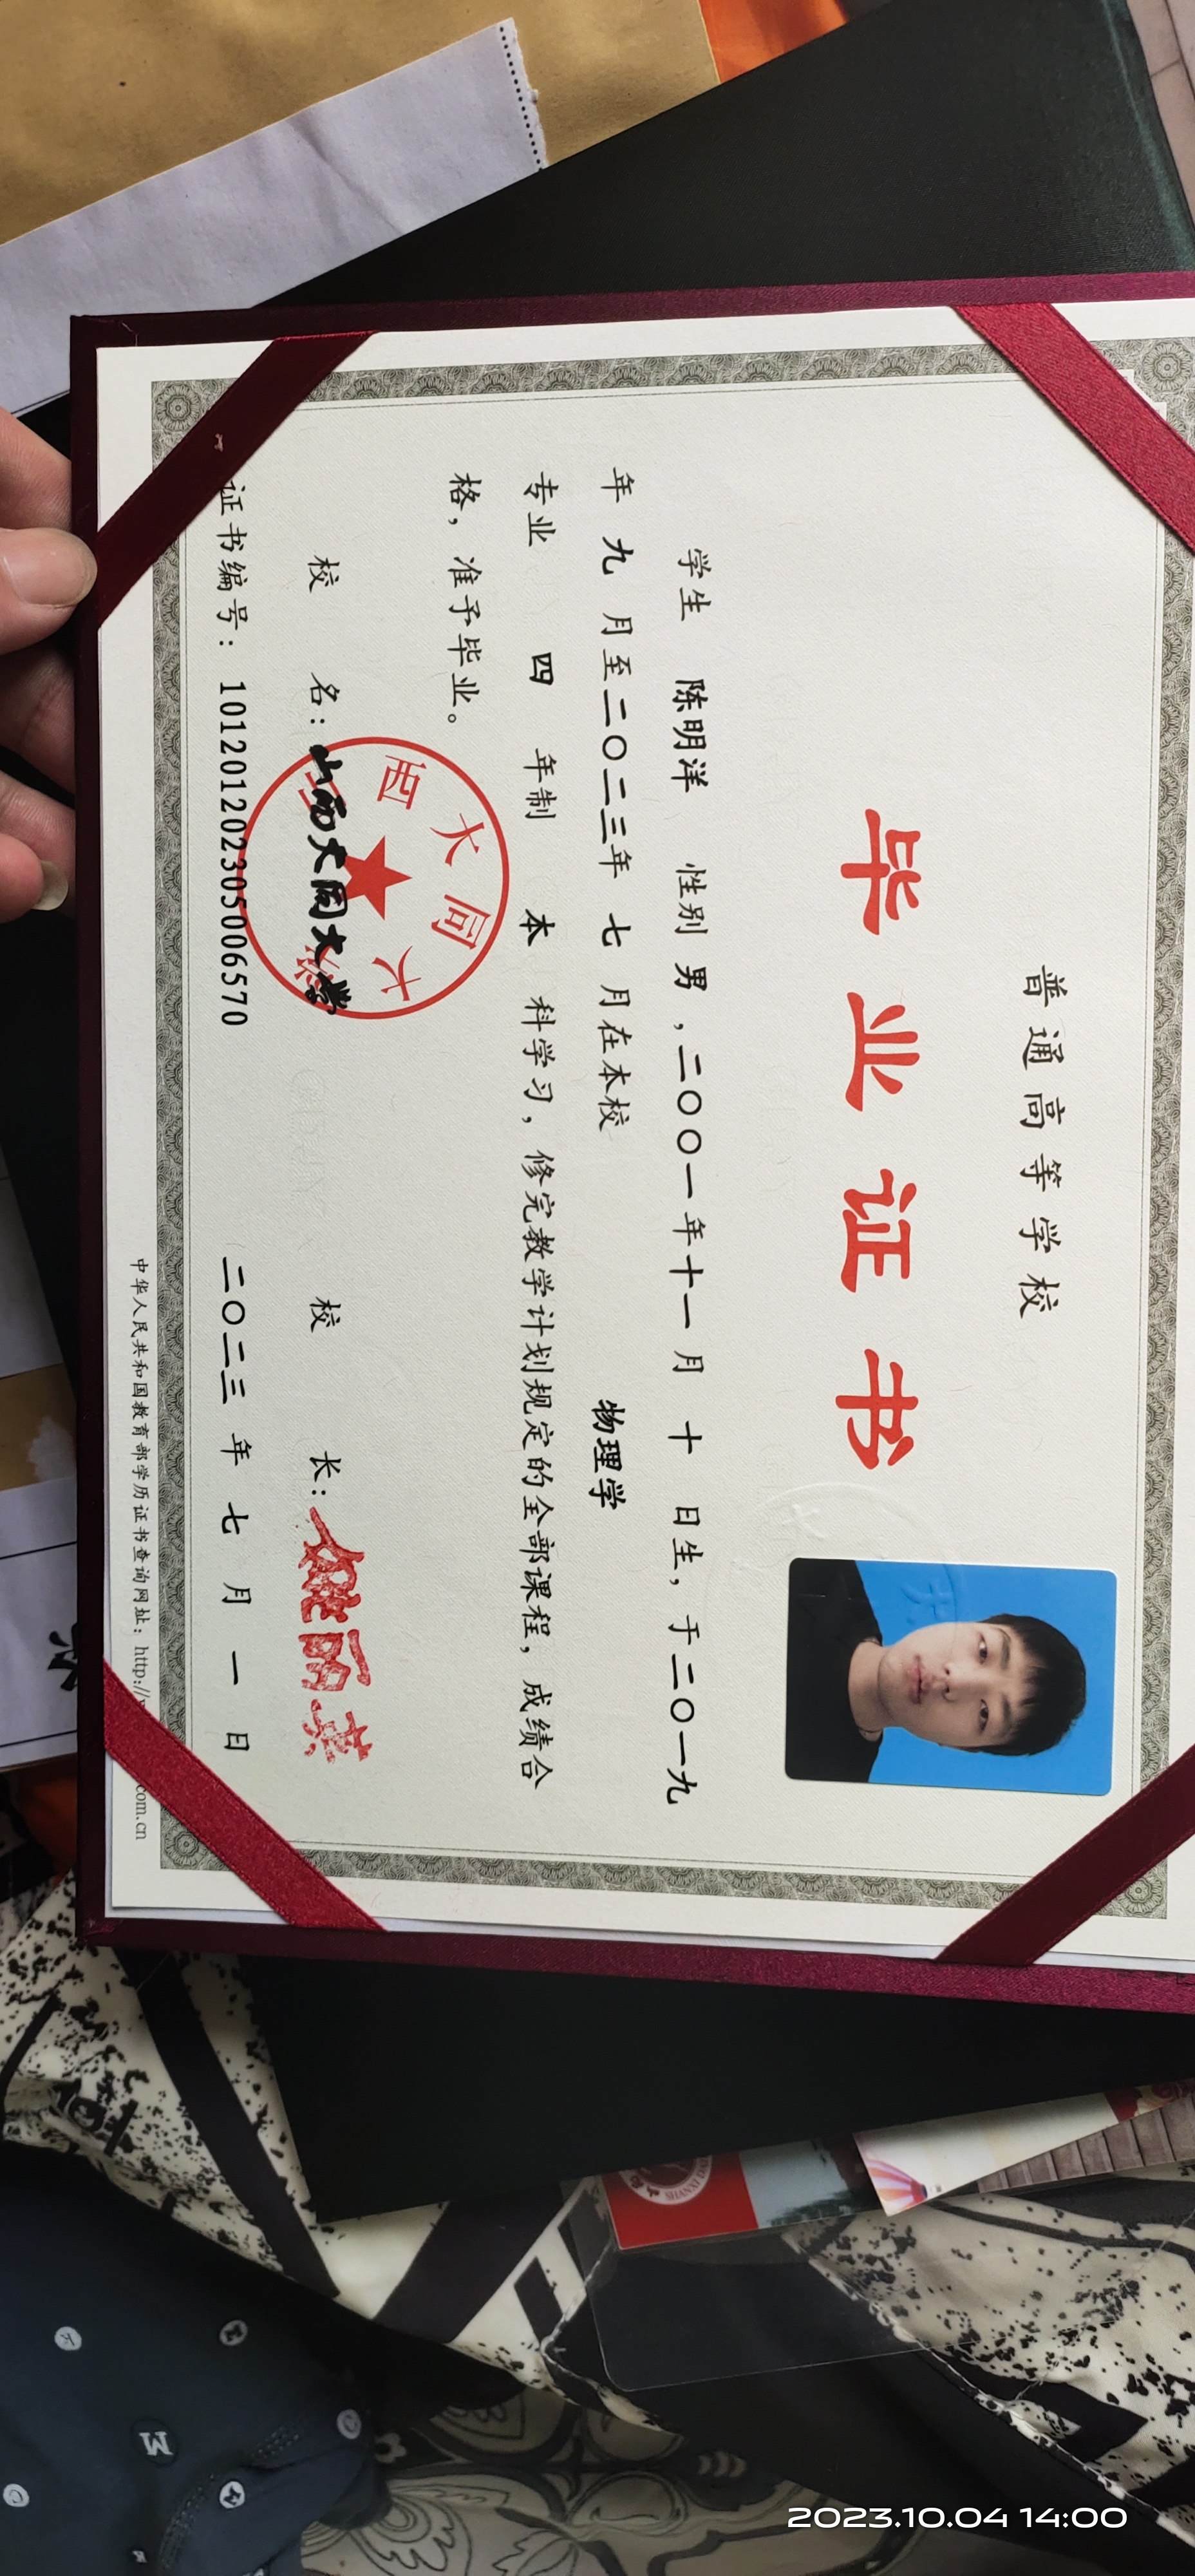 普通高等学校
毕业证书
学生 陈明洋 性别 男，二〇〇一年十一月 十 日生，于二〇一九
年 九 月至二〇二三年 七 月在本校 物理学
专业 四 年制 本 科学习，修完教学计划规定的全部课程，成绩合
格，准予毕业。
校 名：山西大同大学 校 长：
山西大同大学
证书编号：101201202305006570 二〇二三 年 七 月 一 日
中华人民共和国教育部学历证书查询网址：http:// com.cn
2023.10.04 14:00